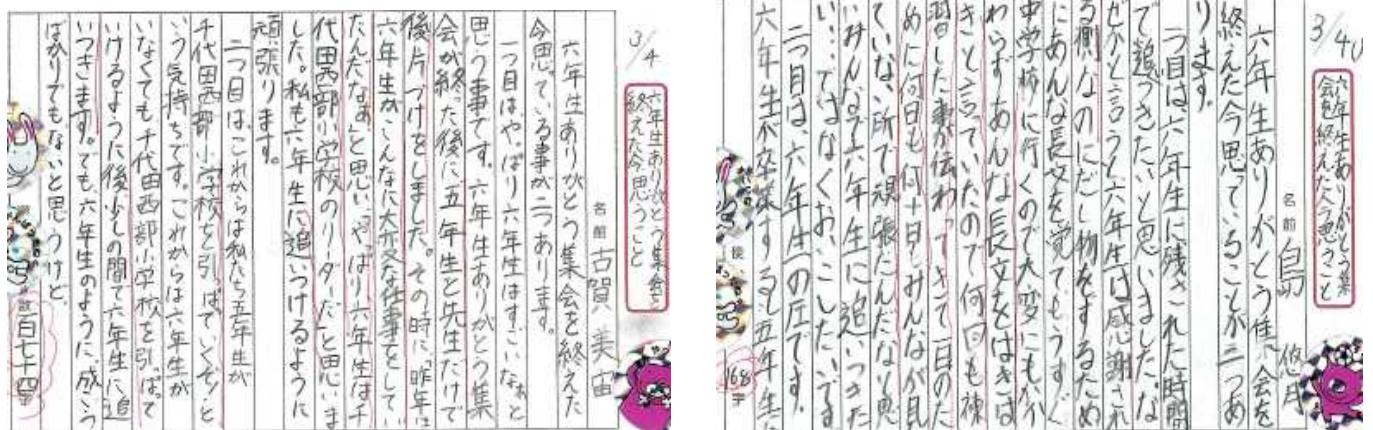 3/4
六年生ありがとう集会を
終えた今思うこと
名前 古賀 美宙
六年生ありがとう集会を終えた
今思っている事が二つあります。
一つ目は、やっぱり六年生はすごいなぁと
思う事です。六年生ありがとう集
会が終った後に五年生と先生だけで
後片づけをしました。その時に「昨年は
六年生がこんなに大変な仕事をしてい
たんだなぁ」と思い、やっぱり、六年生はチ
代田西部小学校のリーダーだと思いま
した。私も六年生に追いつけるように
頑張ります。
二つ目は、これからは私たち五年生が
千代田西部小学校を引っぱていくぞ!と
いう気持ちです。これからは六年生が
いなくても千代田西部小学校を引っぱて
いけるように後少しの間で六年生に追
いつきます。でも、六年生のように、成こう
ばかりでもないと思うけど
百七十四字
3/4
六年生ありがとう集
会を終えた今思うこと
名前 島 悠月
六年生ありがとう集会を
終えた今思っていることが二つあ
ります。
一つ目は、六年生に残された時間
で追づきたいと思いました。な
ぜかと言うと六年生は感謝され
る側なのにだし物をするため
にあんな長文を覚えてもうすぐ
中学校に行くので大変にもかか
わらずあんな長文をはきは
きと言っていたので何回も練
習した事が伝わってきて一日のた
めに何日も何十日もみんなが見
ていない所で頑張たんだなと思
いみんなで六年生に追いつきた
い…ではなくおいこしたいです
二つ目は、六年生の圧です。
六年生が卒業するし五年生
168字